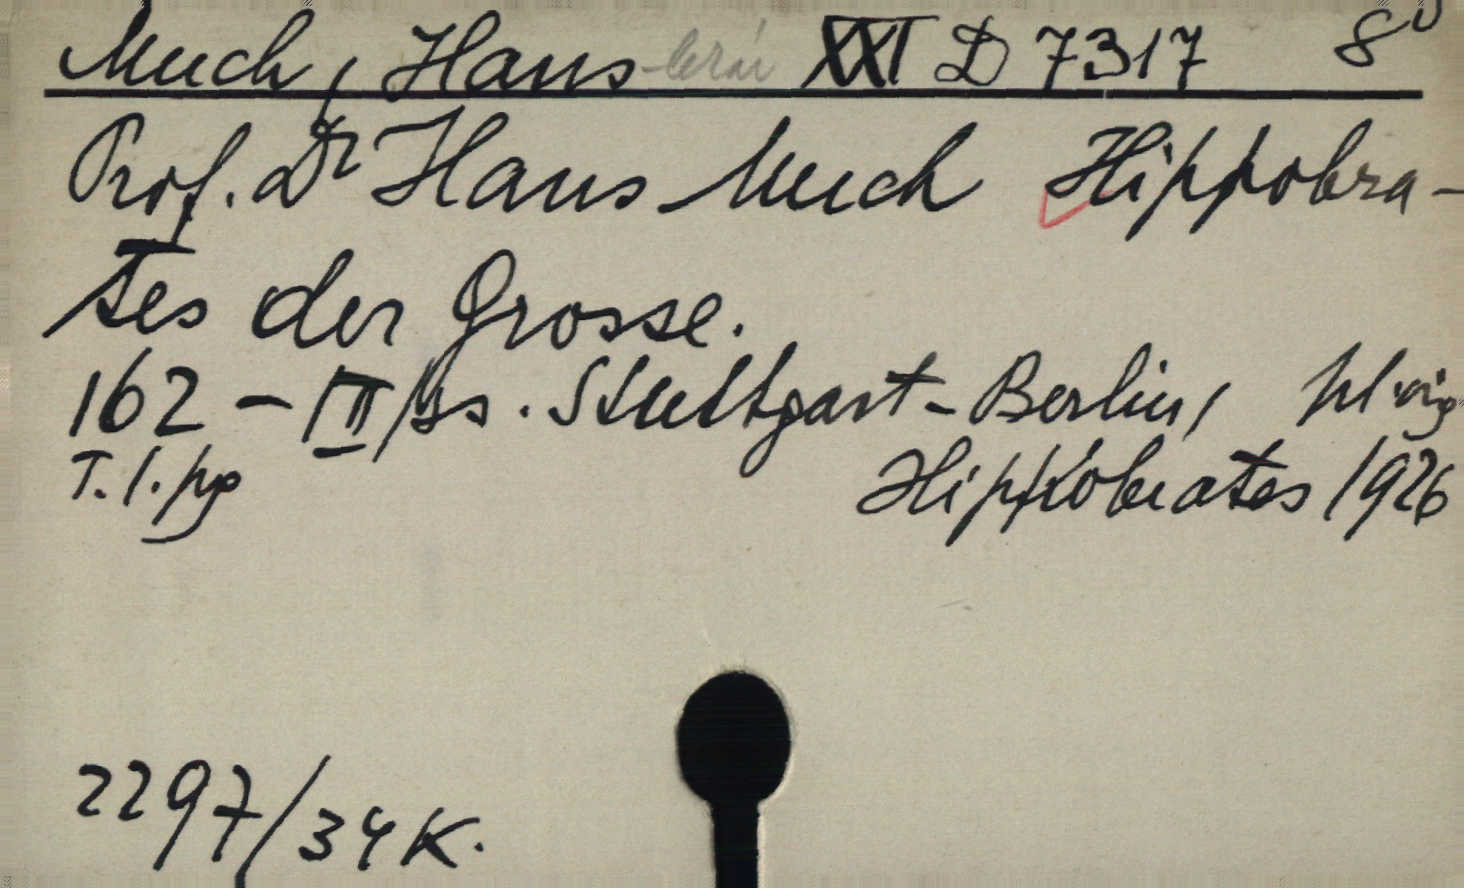 Much, Hans XXI D 7317 8°
Prof. Dr Hans Much Hippokra-
tes der Grosse.
162 - III ss. Stuttgart-Berlin,
T. 1. pg Hippokrates 1926
2297/34 K.